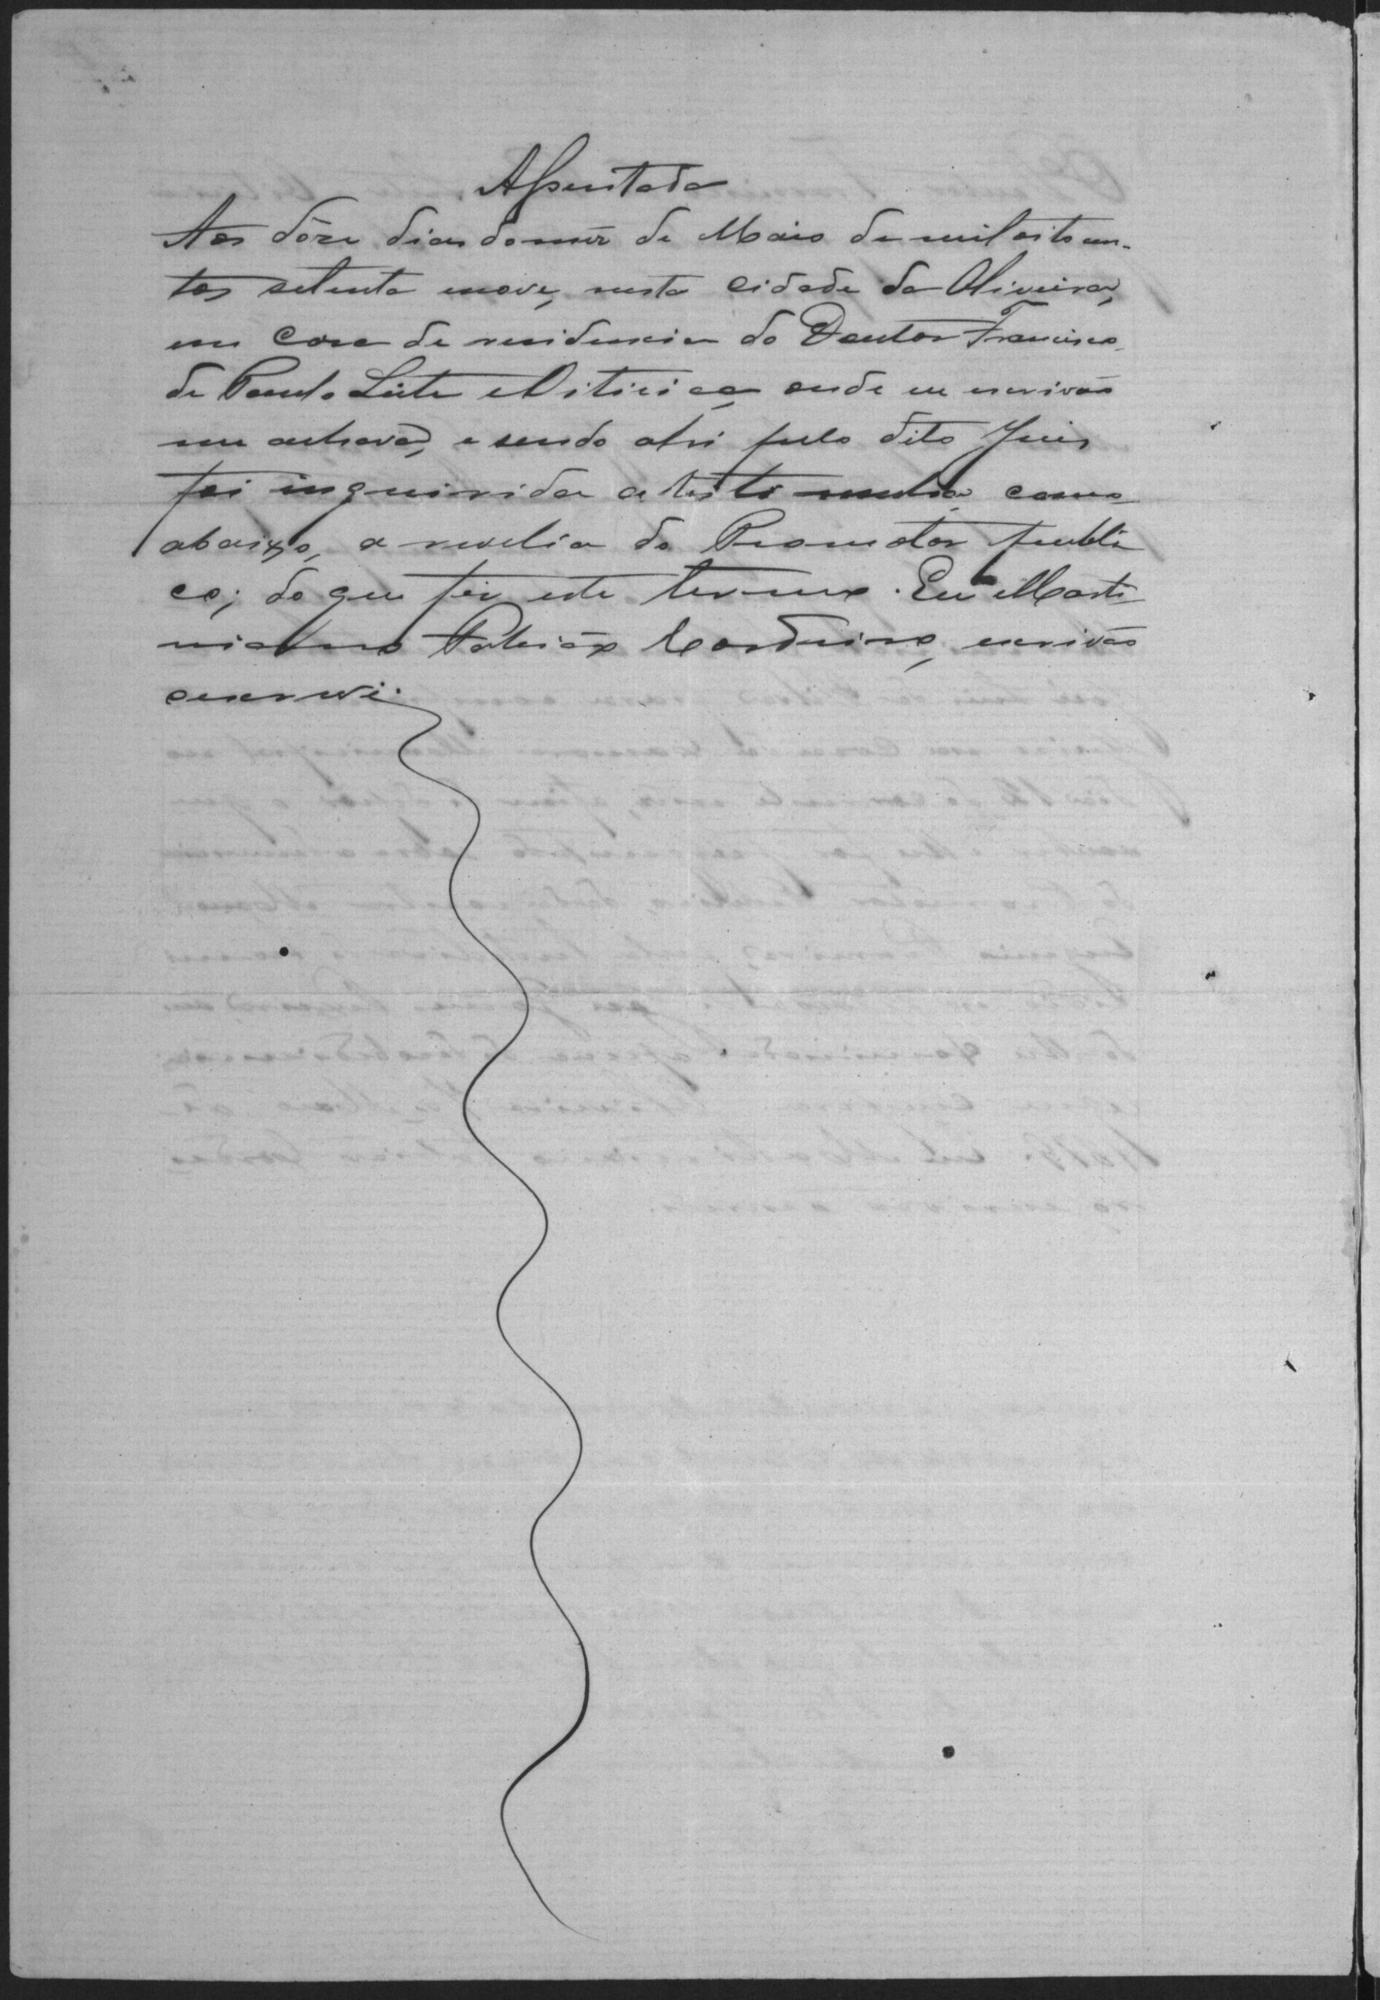 Assentada
Aos dôze dias do mêz de Maio de mil oitocen-
tos setenta enove, nesta cidade da Oliveira,
em casa de residencia do Doutor Francisco
de Paula Leite e Oiticica, onde eu escrivão
me achava, e sendo ahi pelo dito Juis
foi inquirida a testimunha como
abaixo, a revelia do Promotor publi
co; do que fiz este termo. Eu Marti
niano Cordeiro, escrivão
escrevi.